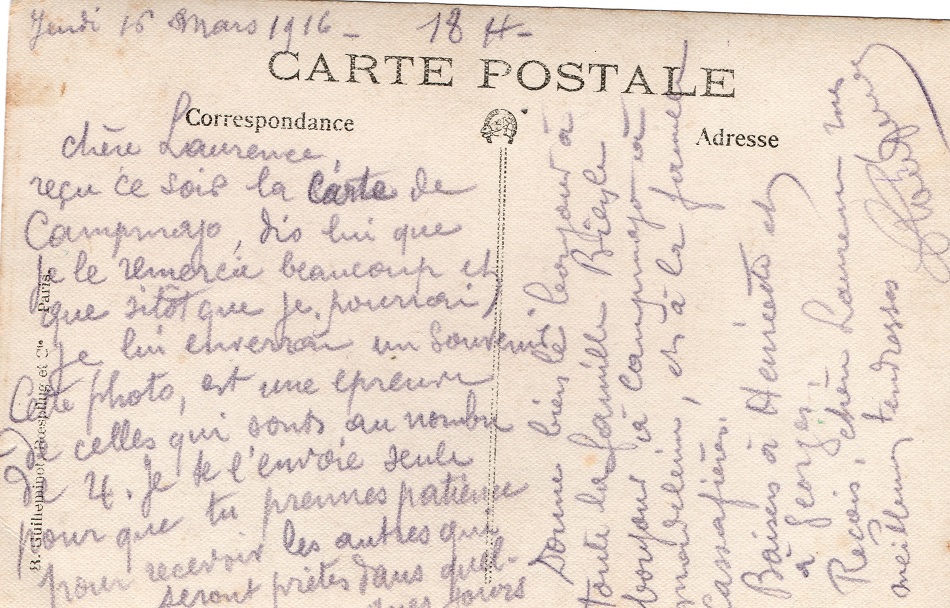 Jeudi 16 Mars 1916 - 18 H -
CARTE POSTALE
Correspondance
Adresse
chère Laurence,
reçu ce soir la carte de
Campmajo, dis lui que
je le remercie beaucoup et
que sitôt que je pourrai,
je lui enverrai un souvenir
Cette photo, est une épreuve
de celles qui sont au nombre
de 4. Je te l'envoie seule
pour que tu prennes patience
pour recevoir les autres qui
seront prêtes dans quel-
ques jours
Donne bien le bonjour à
toute la famille
bonjour à Campmajo à
et à la famille
Cassafières.
Baisers à Henriette et
à Georges
Reçois, chère Laurence mes
meilleures tendresses
S. Guilleminot, Bœspflug et Cie Paris.